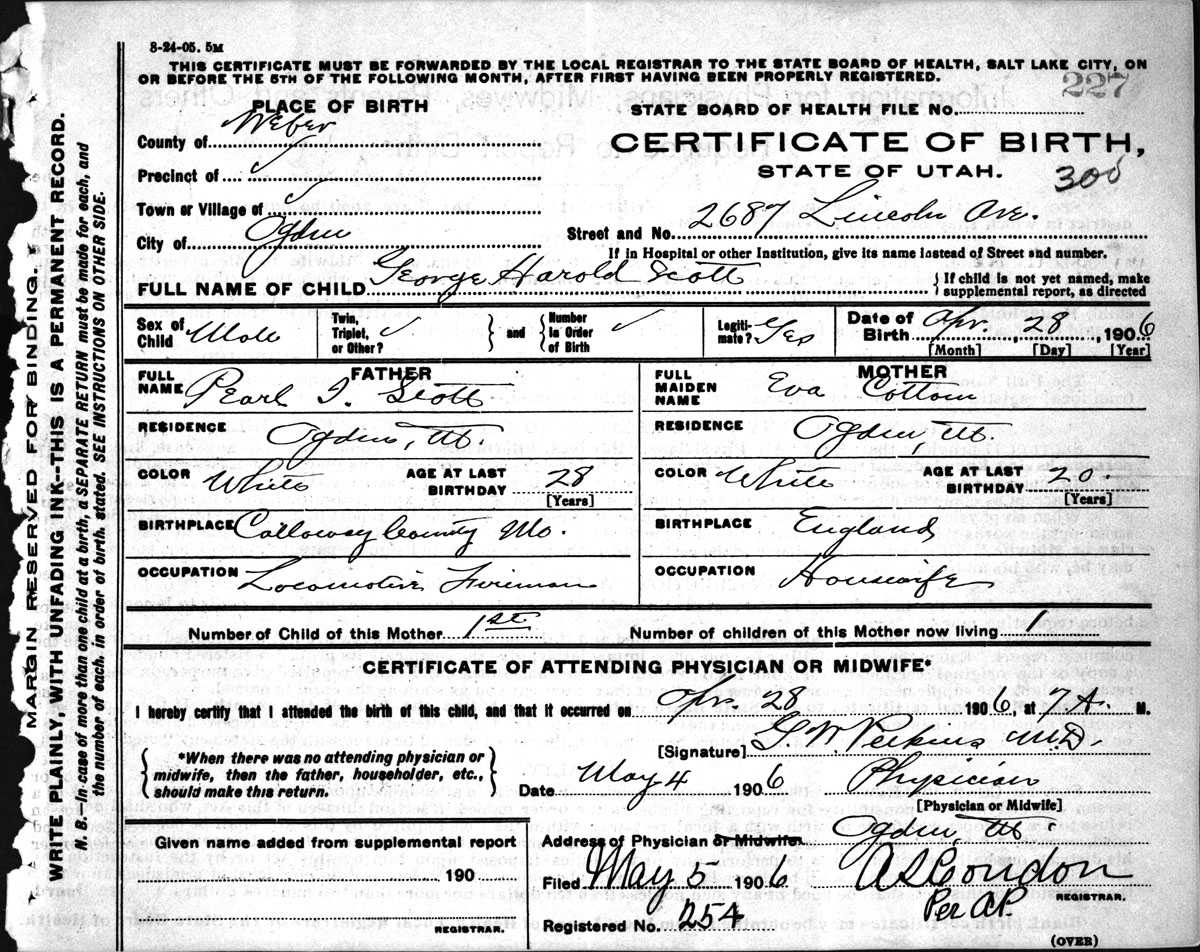 8-24-05. 5M
THIS CERTIFICATE MUST BE FORWARDED BY THE LOCAL REGISTRAR TO THE STATE BOARD OF HEALTH, SALT LAKE CITY, ON
OR BEFORE THE 5TH OF THE FOLLOWING MONTH, AFTER FIRST HAVING BEEN PROPERLY REGISTERED.
227
PLACE OF BIRTH
STATE BOARD OF HEALTH FILE No.
County of Weber
CERTIFICATE OF BIRTH,
Precinct of ✓
STATE OF UTAH.
300
Town or Village of ✓
City of Ogden
Street and No. 2687 Lincoln Ave.
If in Hospital or other Institution, give its name instead of Street and number.
FULL NAME OF CHILD George Harold Scott { If child is not yet named, make
supplemental report, as directed
Sex of Child Male
Twin, Triplet, or Other? ✓ } and { Number in Order of Birth ✓
Legitimate? Yes
Date of Birth Apr. 28, 1906
[Month] [Day] [Year]
FATHER
FULL NAME Pearl I. Scott
RESIDENCE Ogden, Ut.
COLOR White AGE AT LAST BIRTHDAY 28
[Years]
BIRTHPLACE Calloway County Mo.
OCCUPATION Locomotive Fireman
MOTHER
FULL MAIDEN NAME Eva Cottom
RESIDENCE Ogden, Ut.
COLOR White AGE AT LAST BIRTHDAY 20.
[Years]
BIRTHPLACE England
OCCUPATION Housewife
Number of Child of this Mother 1st Number of children of this Mother now living 1
CERTIFICATE OF ATTENDING PHYSICIAN OR MIDWIFE*
I hereby certify that I attended the birth of this child, and that it occurred on Apr. 28 1906, at 7 A. M.
[Signature] G. W. Perkins M.D.
{ *When there was no attending physician or
midwife, then the father, householder, etc.,
should make this return. }
Date May 4 1906 Physician
[Physician or Midwife]
Given name added from supplemental report
190
REGISTRAR.
Address of Physician or Midwife Ogden, Ut.
Filed May 5 1906 A S Condon
REGISTRAR.
Per A.P.
Registered No. 254
(OVER)
MARGIN RESERVED FOR BINDING.
WRITE PLAINLY, WITH UNFADING INK--THIS IS A PERMANENT RECORD.
N. B.--In case of more than one child at a birth, a SEPARATE RETURN must be made for each, and
the number of each, in order of birth, stated. SEE INSTRUCTIONS ON OTHER SIDE.